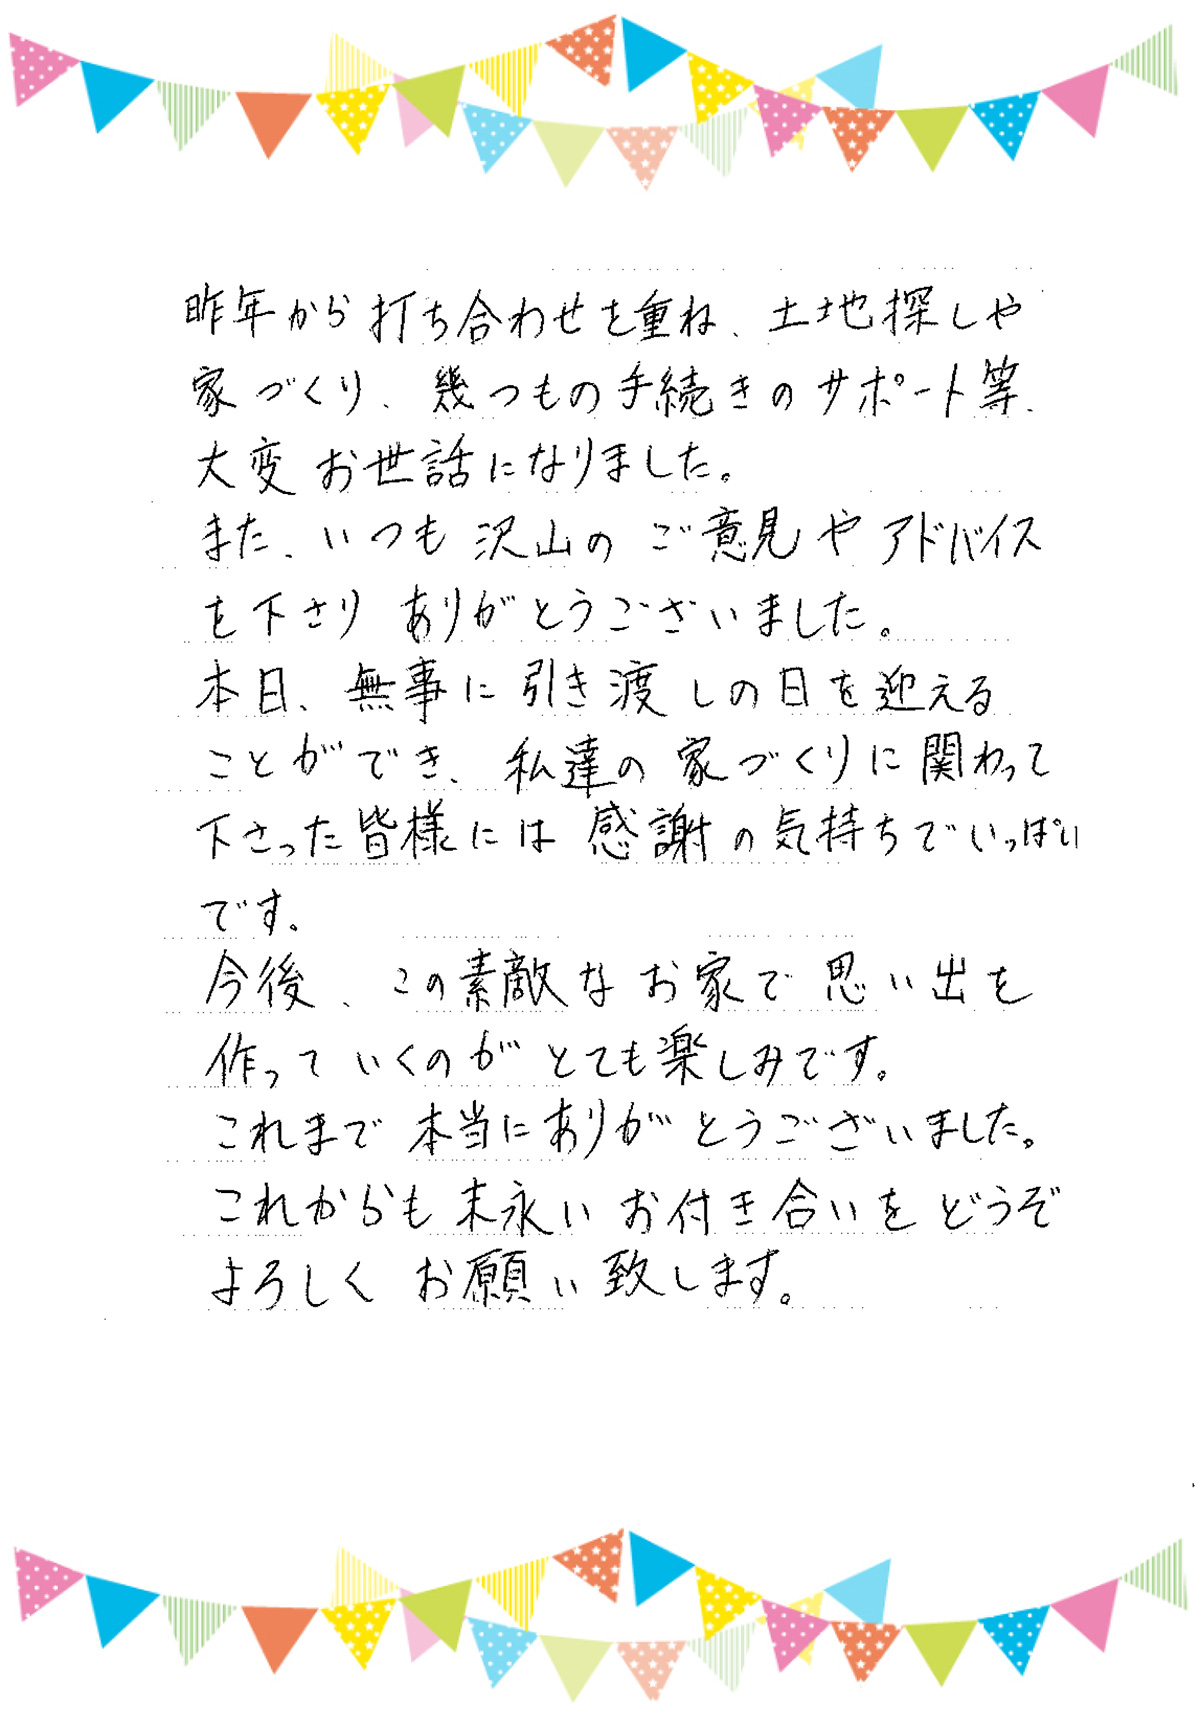 昨年から打ち合わせを重ね、土地探しや
家づくり、幾つもの手続きのサポート等、
大変お世話になりました。
また、いつも沢山のご意見やアドバイス
を下さりありがとうございました。
本日、無事に引き渡しの日を迎える
ことができ、私達の家づくりに関わって
下さった皆様には感謝の気持ちでいっぱい
です。
今後、この素敵なお家で思い出を
作っていくのがとても楽しみです。
これまで本当にありがとうございました。
これからも末永いお付き合いをどうぞ
よろしくお願い致します。